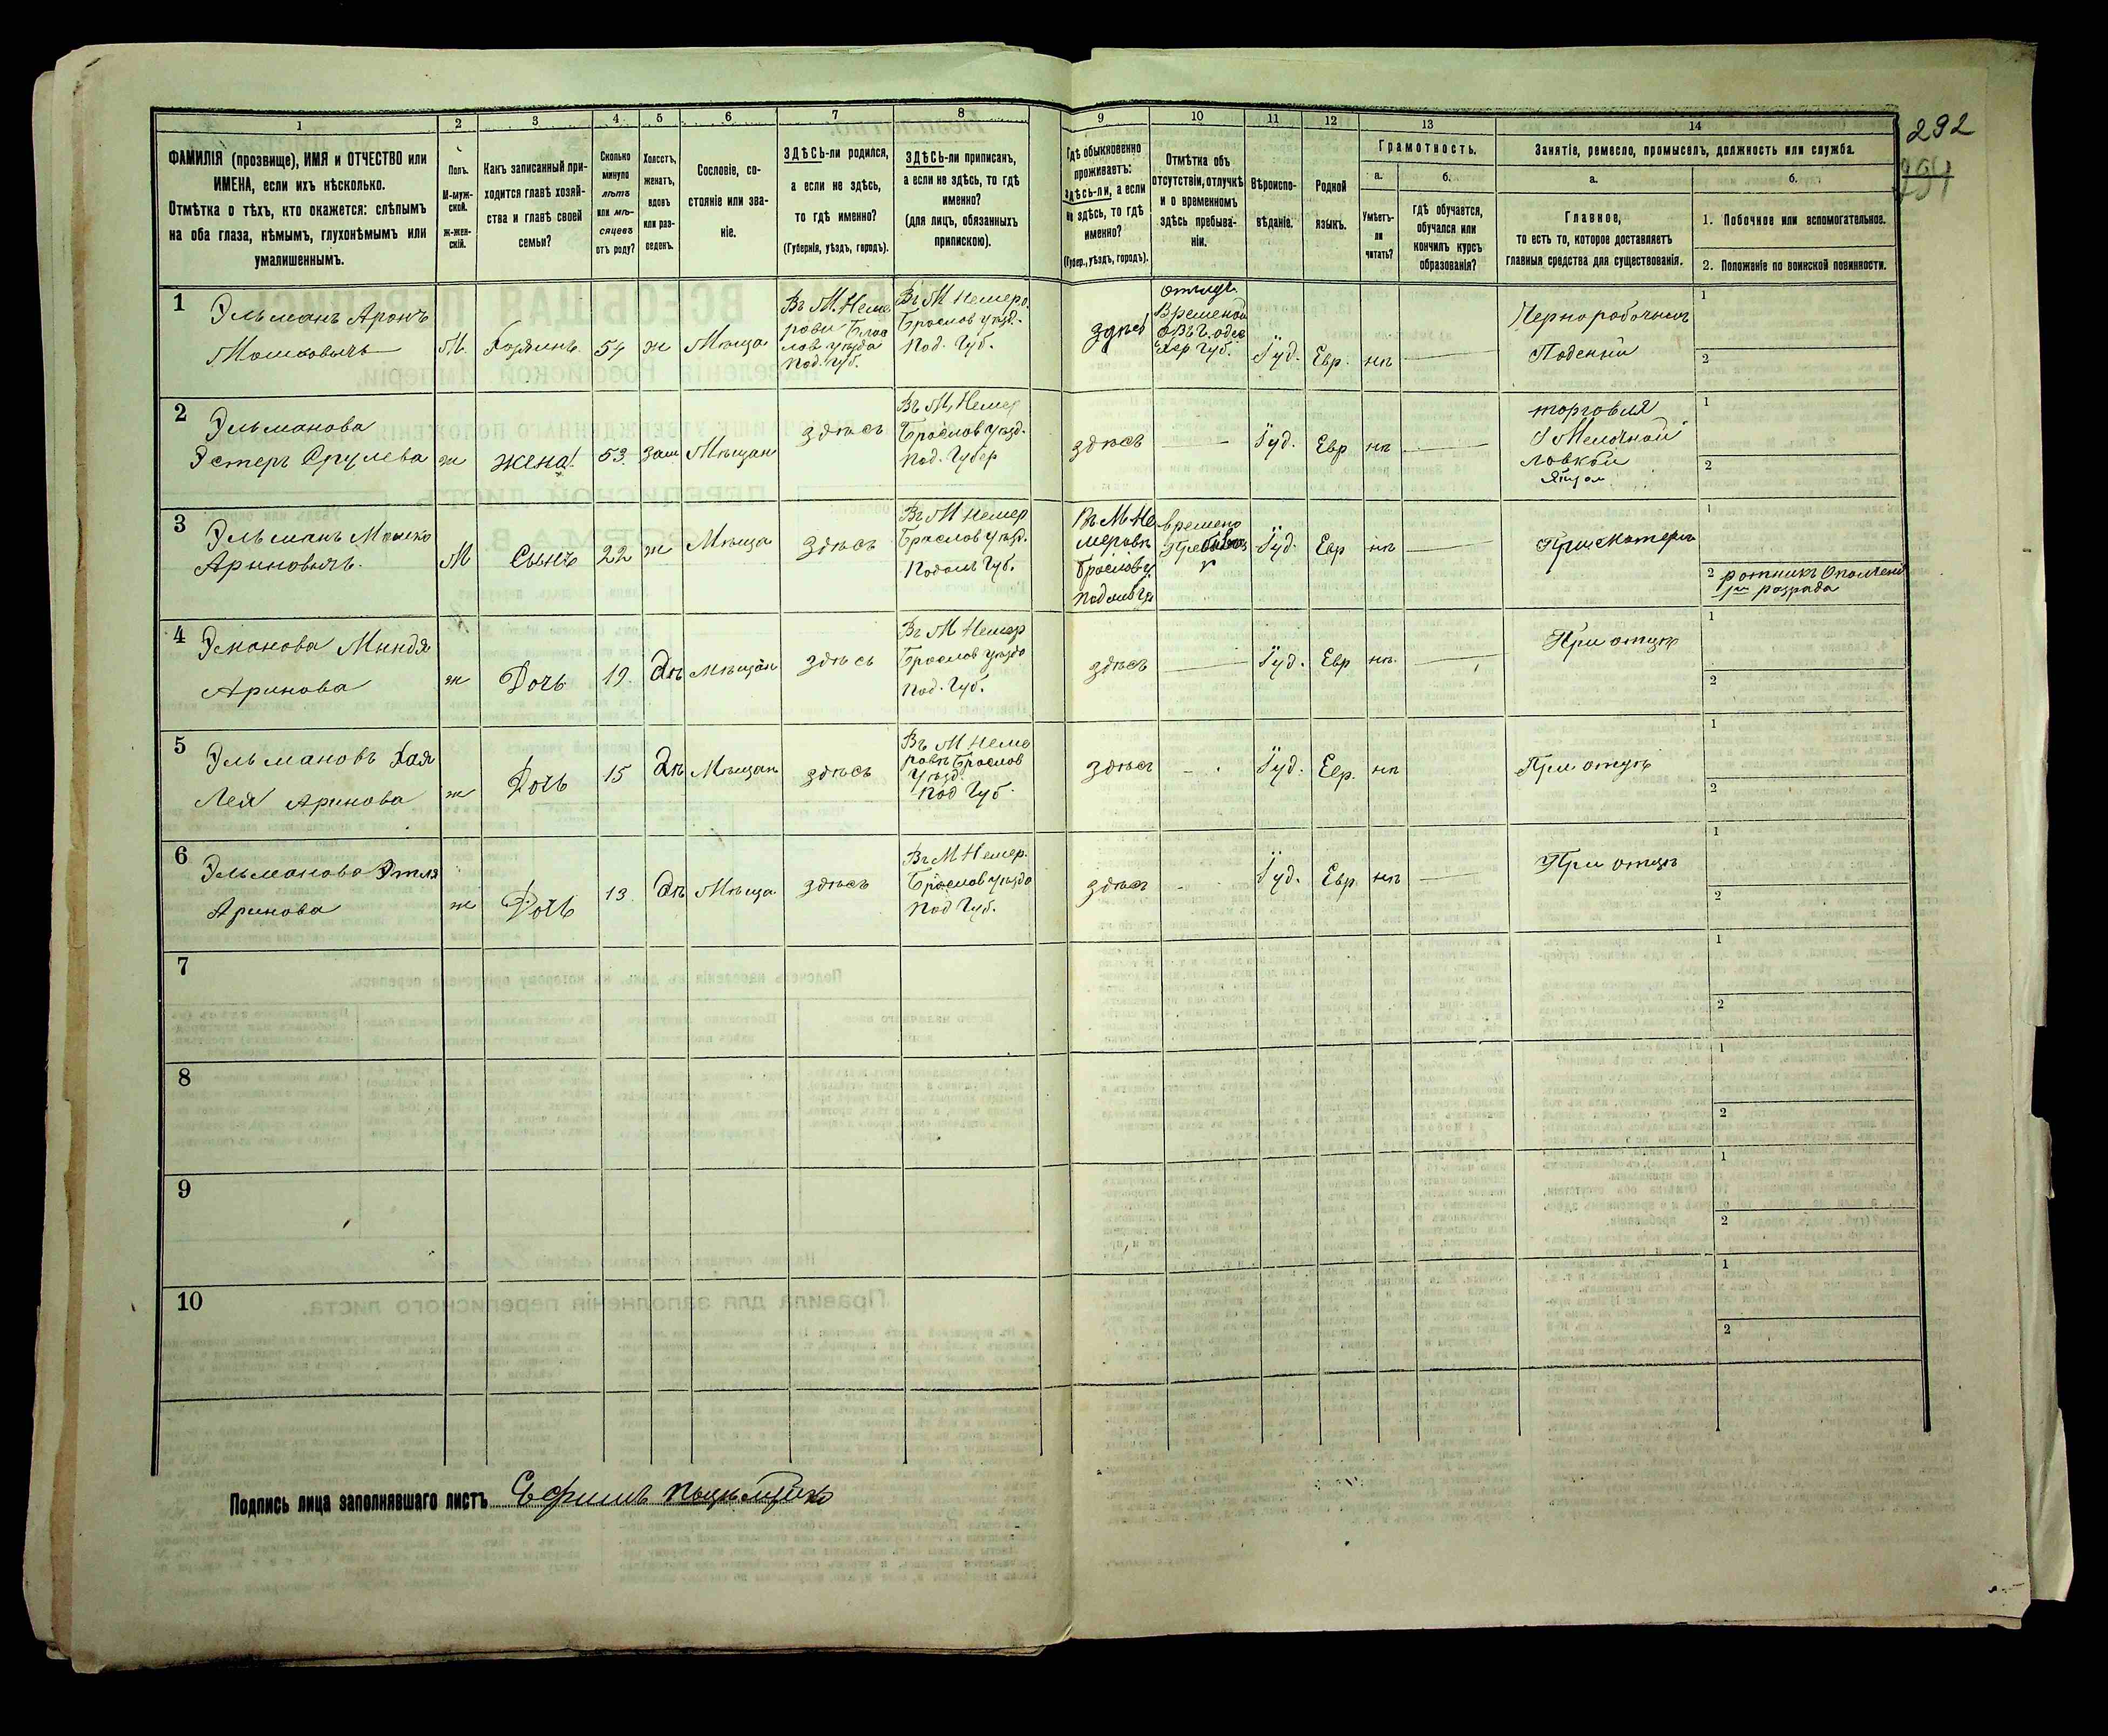 1
2
3
4
5
6
7
8
9
10
11
12
13
14
292
ФАМИЛІЯ (прозвище), ИМЯ и ОТЧЕСТВО или
ИМЕНА, если ихъ нѣсколько.
Отмѣтка о тѣхъ, кто окажется: слѣпымъ
на оба глаза, нѣмымъ, глухонѣмымъ или
умалишеннымъ.
Полъ.
М-муж-
ской.
ж-жен-
скій.
Какъ записанный при-
ходится главѣ хозяй-
ства и главѣ своей
семьи?
Сколько
минуло
лѣтъ
или мѣ-
сяцевъ
отъ роду?
Холостъ,
женатъ,
вдовъ
или раз-
веденъ.
Сословіе, со-
стояніе или зва-
ніе.
ЗДѢСЬ-ли родился,
а если не здѣсь,
то гдѣ именно?
(Губернія, уѣздъ, городъ).
ЗДѢСЬ-ли приписанъ,
а если не здѣсь, то гдѣ
именно?
(для лицъ, обязанныхъ
припискою).
Гдѣ обыкновенно
проживаетъ:
здѣсь-ли, а если
не здѣсь, то гдѣ
именно?
(Губер., уѣздъ, городъ).
Отмѣтка объ
отсутствіи, отлучкѣ
и о временномъ
здѣсь пребыва-
ніи.
Вѣроиспо-
вѣданіе.
Родной
языкъ.
Грамотность.
а.
Умѣетъ-
ли
читать?
б.
гдѣ обучается,
обучался или
кончилъ курсъ
образованія?
Занятіе, ремесло, промыселъ, должность или служба.
а.
Главное,
то есть то, которое доставляетъ
главныя средства для существованія.
б.
1. Побочное или вспомогательное.
2. Положеніе по воинской повинности.
1
Эльманъ Аронъ
Мошковичъ
М.
Хозяинъ
54
ж
Мѣща
Въ М. Неме
рови Брас
лов уѣзда
Под. Губ.
Въ М Немеро.
Браслов уѣзд.
Под. Губ.
здѣсь
Временой
въ г. Одес
Хер Губ.
Іуд.
Евр.
нѣ
Чернорабочимъ
Поденый
1
2
2
Эльманова
Эстеръ Срулева
ж
жена
53
зам
Мѣщан
здѣсь
Въ М. Немер
Браслов уѣзд.
Под. Губер
здѣсь
Іуд.
Евр
нѣ
торговля
Мелочной
1
2
3
Эльманъ Мошко
Ароновичъ
М
Сынъ
22
ж
Мѣща
здѣсь
Въ М Немер
Браслов уѣзд.
Подоль Губ.
Въ М Не
меровѣ
Браслов у.
времено
Іуд.
Евр
нѣ
При матери
1
2 ратникъ Ополчени
1го разряда
4
Эманова Миндя
Аринова
ж
Дочь
19.
Дѣ
Мѣщан
здѣсь
Въ М Немер
Браслов уѣзда
Под. Губ.
здѣсь
Іуд.
Евр
нѣ.
При отцѣ
1
2
5
Эльмановъ Хая
Лея Аринова
ж
Дочь
15
Дѣ
Мѣщан
здѣсь
Въ М Неме
ровѣ Браслов
Уѣзд.
Под Губ.
здѣсь
Іуд.
Евр.
нѣ
При отцѣ
1
2
6
Эльманова Этля
Аринова
ж
Дочь
13
Дѣ
Мѣща
здѣсь
Въ М Немер.
Браслов уѣзда
Под Губ.
здѣсь
Іуд.
Евр
нѣ
При отцѣ
1
2
7
1
2
8
1
2
9
1
2
10
1
2
Подпись лица заполнявшаго листъ Ефимъ